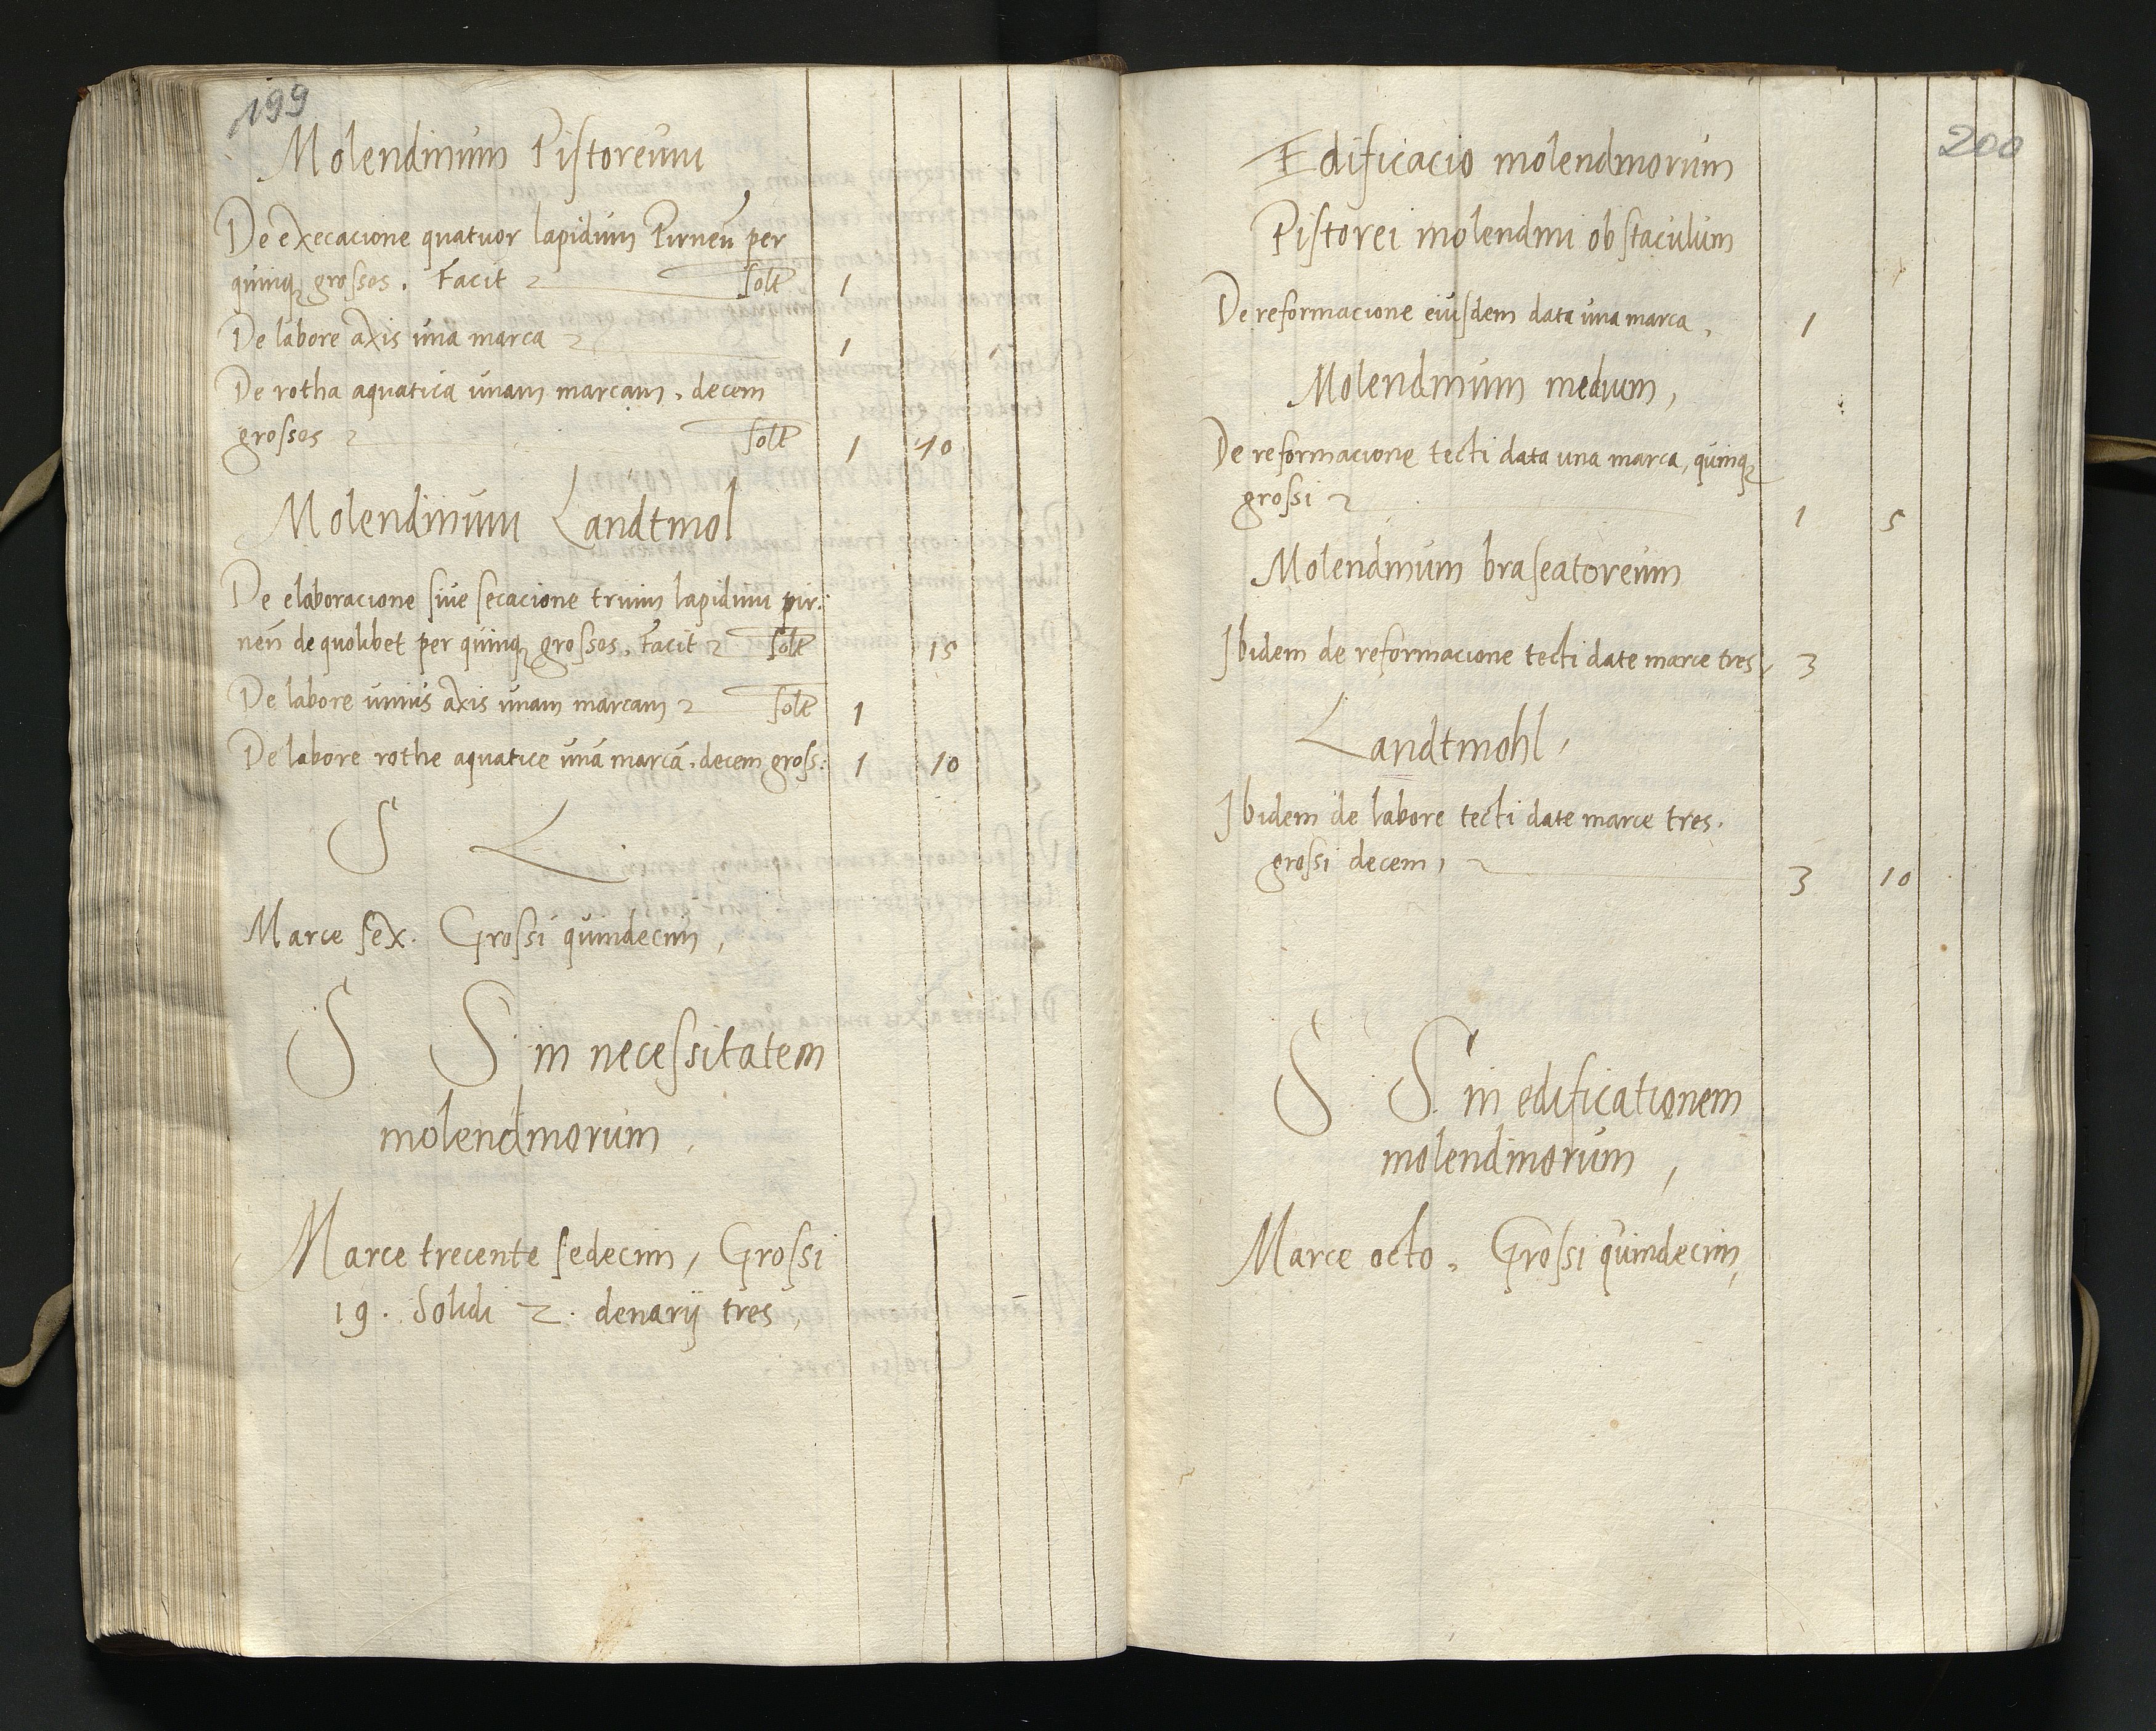 199
Molendinum Pistoreum
De execacione quatuor lapidum Pirneñ per
quinqꝫ grossos. Facit solt 1
De labore axis una marca 1
De rotha aquatica unam marcam, decem
grossos solt 1 10
Molendinum Landtmol
De elaboracione siue secacione trium lapidum pir:
neñ de quolibet per quinqꝫ grossos. Facit solt 15
De labore unius axis unam marcam solt 1
De labore rothe aquatice unā marcā, decem gross: 1 10
S L
Marce sex. Grossi quindecim,
S S in necessitatem
molendinorum,
Marce trecente sedecim, Grossi
19. Solidi 2. denarij tres,
200
Edificacio molendinorum
Pistorei molendini obstaculum
De reformacione eiusdem data una marca, 1
Molendinum medium,
De reformacione tecti data una marca, quinqꝫ
grossi 1 5
Molendinum braseatoreum
Ibidem de reformacione tecti date marce tres, 3
Landtmohl,
Ibidem de labore tecti date marce tres,
grossi decem, 3 10
S. S. in edificationem
molendinorum,
Marce octo, Grossi quindecim,